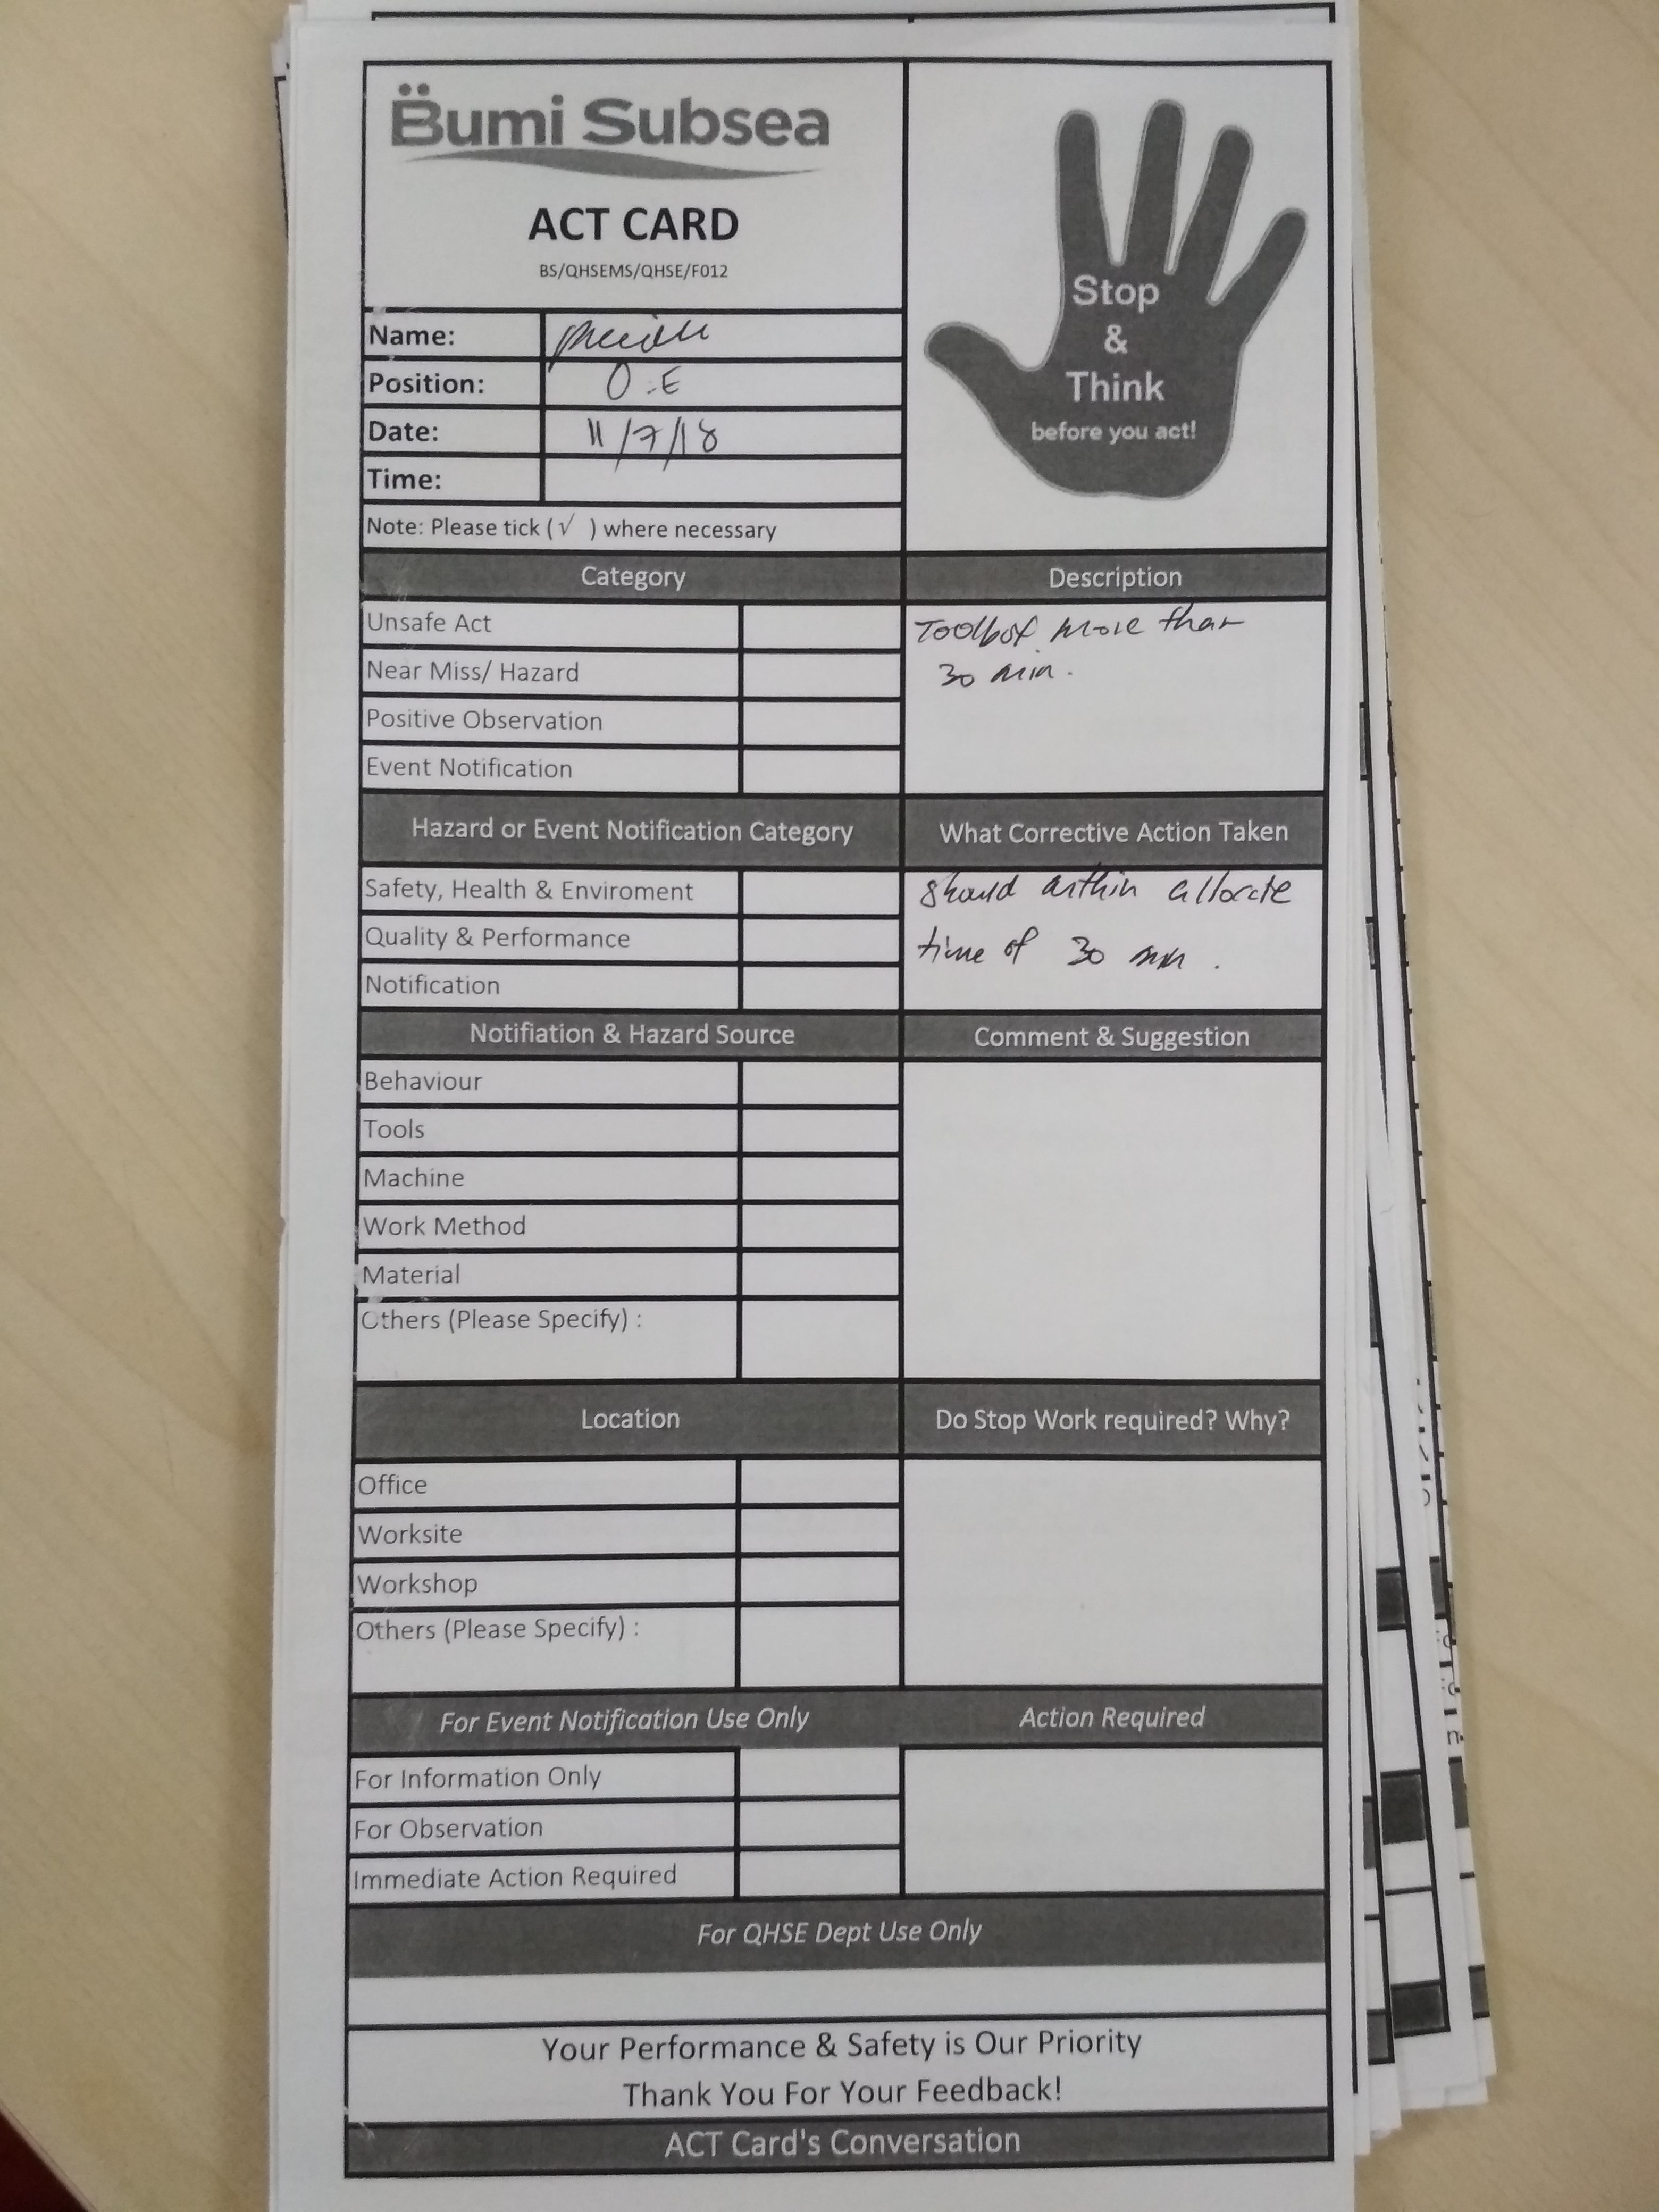 Bumi Subsea
ACT CARD
BS/QHSEMS/QHSE/F012
Stop
&
Think
before you act!
Name:
Position: O.E
Date: 11/7/18
Time:
Note: Please tick (√ ) where necessary
Category
Description
Unsafe Act
Near Miss/ Hazard
Positive Observation
Event Notification
Toolbox more than
30 min.
Hazard or Event Notification Category
What Corrective Action Taken
Safety, Health & Enviroment
Quality & Performance
Notification
should within allocate
time of 30 min .
Notifiation & Hazard Source
Comment & Suggestion
Behaviour
Tools
Machine
Work Method
Material
Others (Please Specify) :
Location
Do Stop Work required? Why?
Office
Worksite
Workshop
Others (Please Specify) :
For Event Notification Use Only
Action Required
For Information Only
For Observation
Immediate Action Required
For QHSE Dept Use Only
Your Performance & Safety is Our Priority
Thank You For Your Feedback!
ACT Card's Conversation